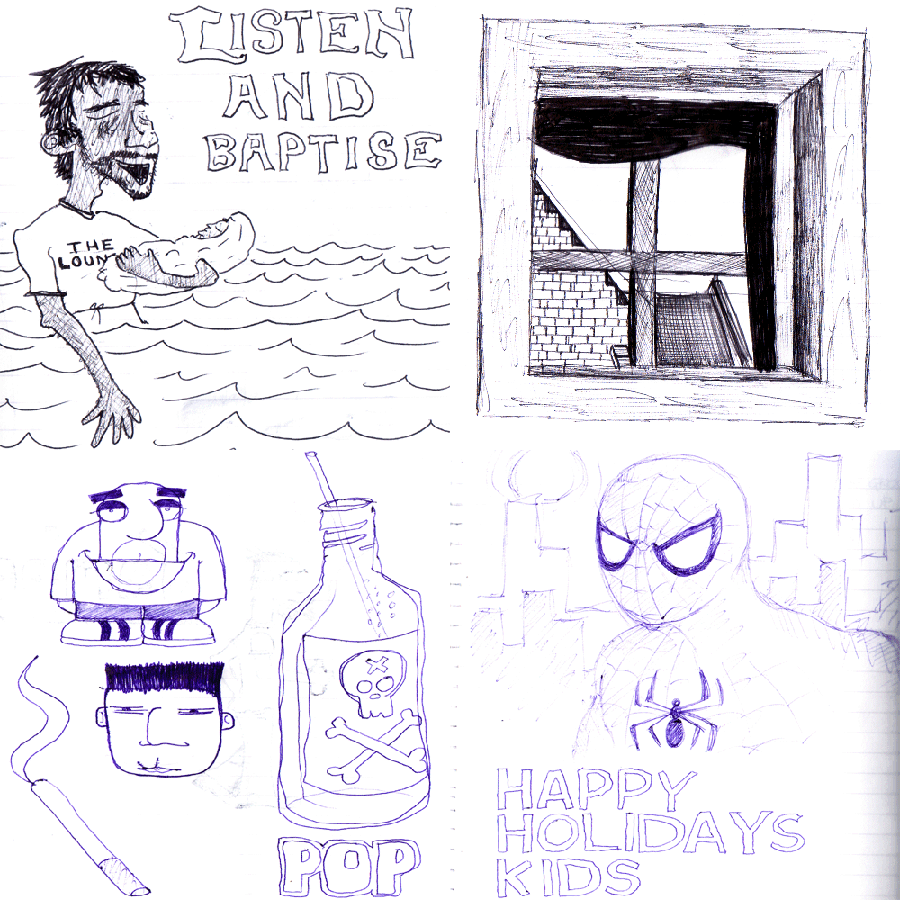 LISTEN
AND
BAPTISE
THE
LOUN
POP
HAPPY
HOLIDAYS
KIDS